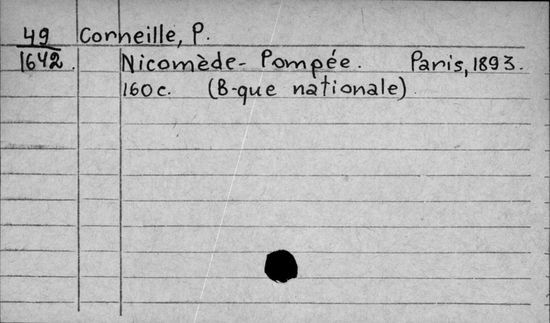 49 Corneille, P.
1642. Nicomède - Pompée. Paris, 1893.
160 c. (B-que nationale)